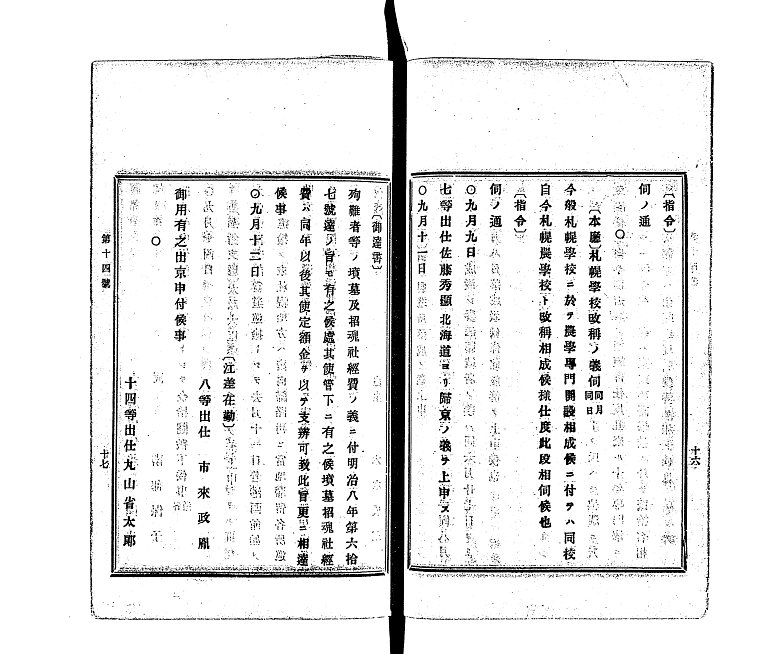 〔指令〕
伺ノ通
〇
〔本廳〕札幌學校改稱ノ義伺 同月同日
今般札幌學校ニ於テ農學專門開設相成候ニ付テハ同校
自今札幌農學校ト改稱相成候樣仕度此段相伺候也
〔指令〕
伺ノ通
〇九月九日
七等出仕佐藤秀顯北海道ヨリ歸京ノ義ヲ上申ス
〇九月十二日
十六
〔御達書〕
殉難者等ノ墳墓及招魂社經費ノ義ニ付明治八年第六拾
七號達ノ旨モ有之候處其使管下ニ有之候墳墓招魂社經
費ハ同年以後其使定額金ヲ以テ支辨可致此旨更ニ相達
候事
〇九月十三日
〔江差在勤〕
八等出仕 市來政胤
御用有之出京申付候事
〇
十四等出仕丸山省太郎
第十四號
十七